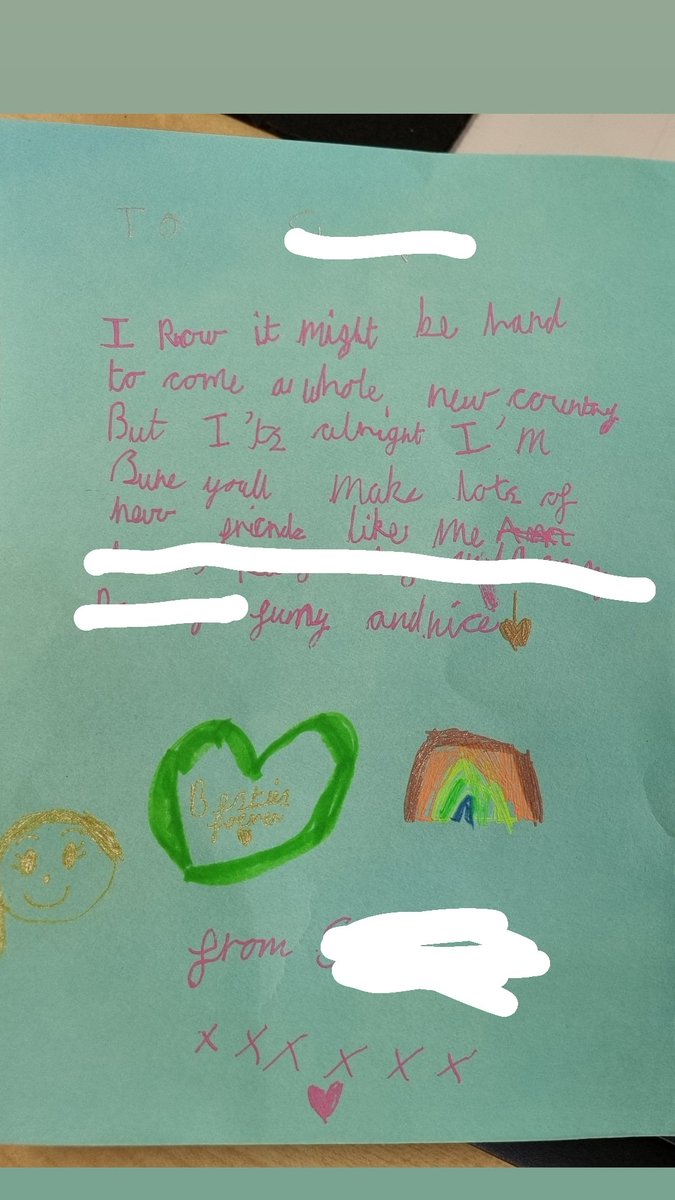 To
I know it might be hard
to come a whole, new country
But I'ts alright I'M
Sure youll make lots of
new friends like me
funny and nice
Besties
forever
from
x x x x x x